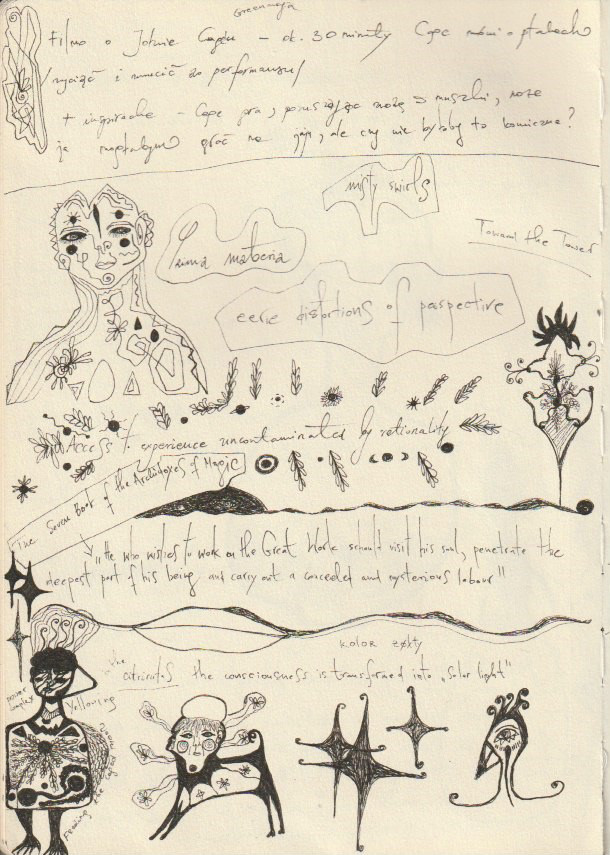 Greenaway
Filmo o Johnie Cage'u – ok. 30 minuty Cage mówi o ptakach
/wyciąć i wrzucić do performansu/
+ inspiracke – Cage gra, poruszając wodę w muszli, może
ja mogłabym grać na jaju, ale czy nie byłoby to komiczne?
misty swirls
Prima materia
Toward the Tower
eerie distortions of paspective
Access to experience uncontaminated by rationality
The Seven Book of the Archidoxes of Magic
"He who wishes to work on the Great Work should visit his soul, penetrate the
deepest part of his being and carry out a concealed and mysterious labour"
kolor żółty
in the citrinitas the consciousness is transformed into „solar light"
Yellowing